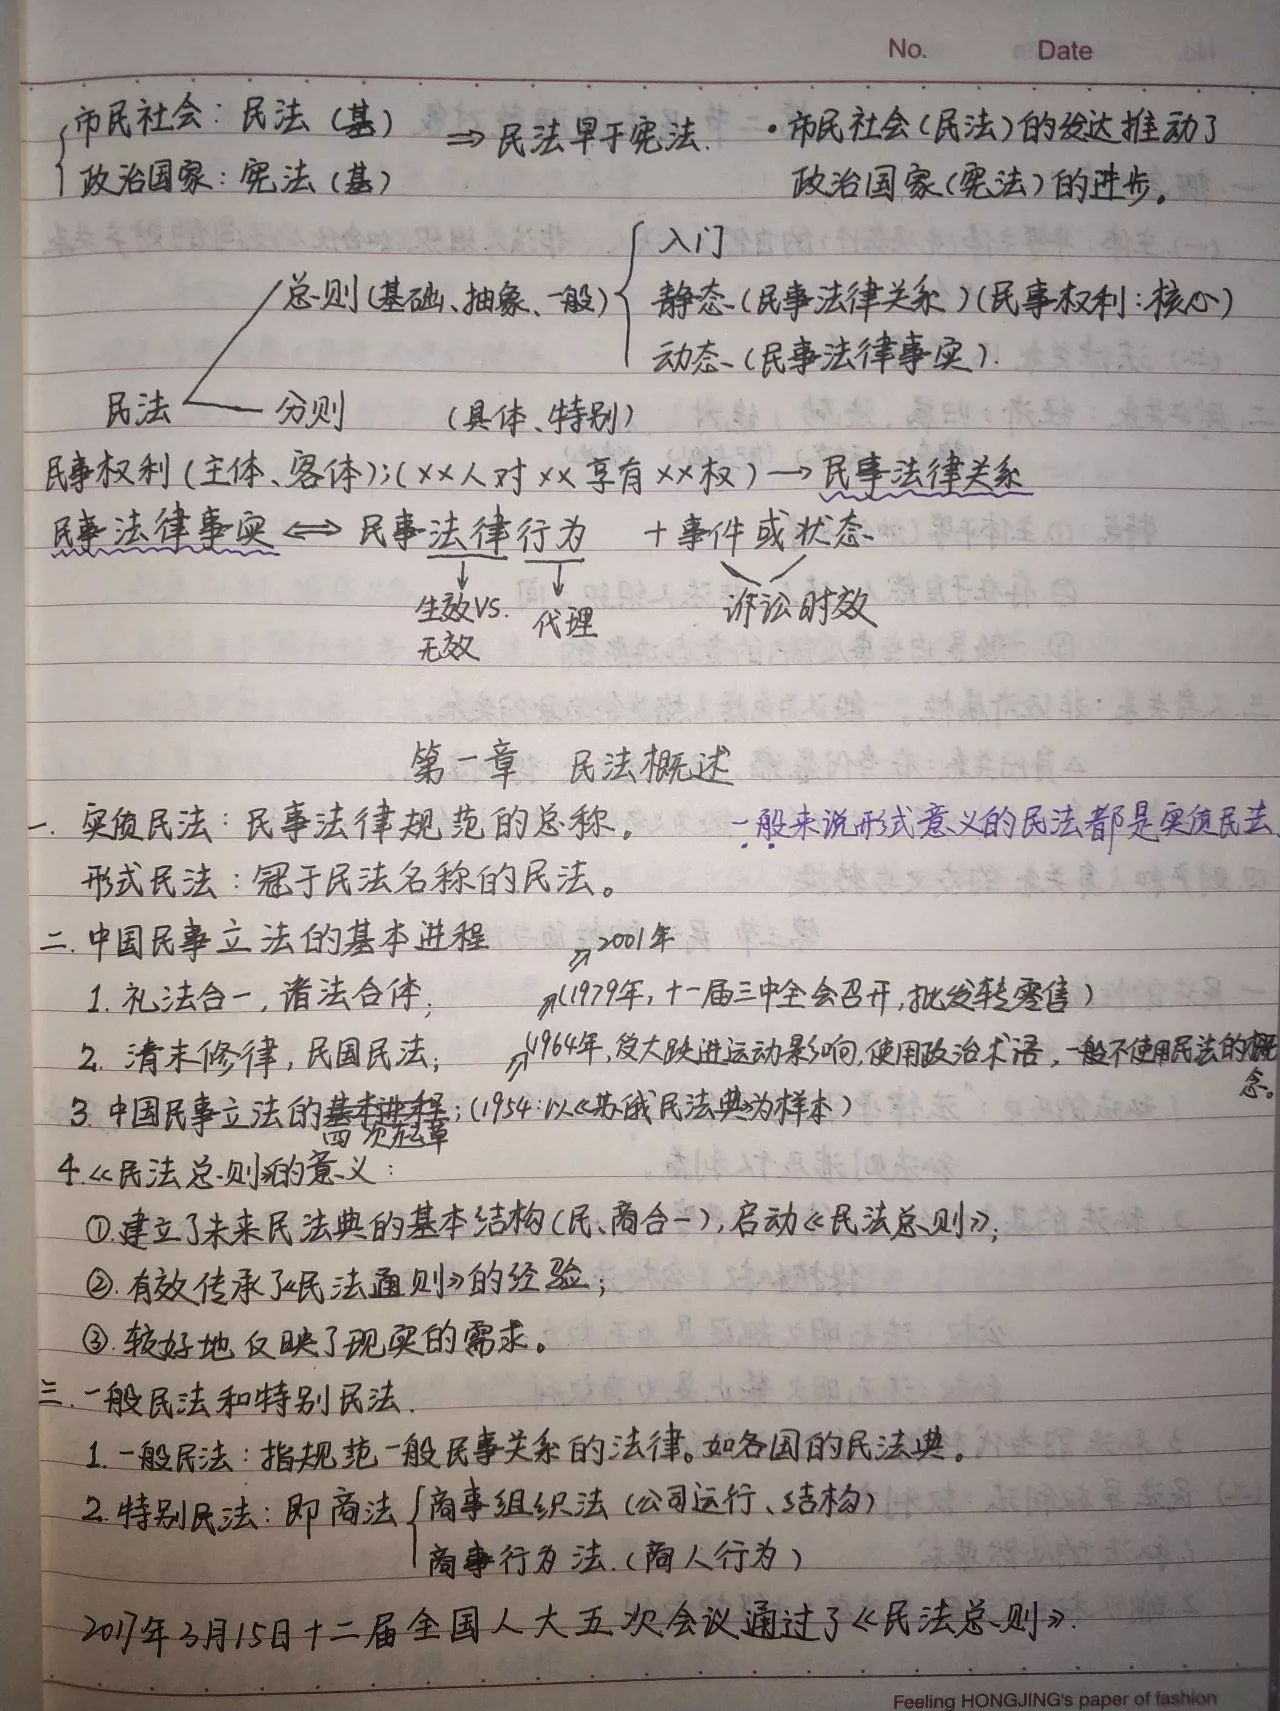 No. Date
市民社会：民法（基） ⇒民法早于宪法. ·市民社会（民法）的发达推动了
政治国家：宪法（基） 政治国家（宪法）的进步。
入门
总则（基础、抽象、一般） 静态（民事法律关系）（民事权利：核心）
动态（民事法律事实）.
民法 分则 （具体、特别）
民事权利（主体、客体）;（××人对××享有××权）→民事法律关系
民事法律事实⇔民事法律行为 +事件或状态
生效VS. 代理 诉讼时效
无效
第一章 民法概述
一. 实质民法：民事法律规范的总称。 一般来说形式意义的民法都是实质民法
形式民法：冠于民法名称的民法。
二. 中国民事立法的基本进程 ⇗2001年
1. 礼法合一，诸法合体; ⇗(1979年，十一届三中全会召开,批发转零售)
2. 清末修律，民国民法; ⇗(1964年,受大跃进运动影响,使用政治术语，一般不使用民法的概
念。
3. 中国民事立法的基本进程;(1954:以《苏俄民法典》为样本)
四次
4.《民法总则》的意义：
①.建立了未来民法典的基本结构(民、商合一),启动《民法总则》;
②.有效传承了《民法通则》的经验;
③.较好地反映了现实的需求。
三.一般民法和特别民法.
1.一般民法：指规范一般民事关系的法律。如各国的民法典。
2.特别民法：即商法 商事组织法（公司运行、结构）
商事行为法.（商人行为）
2017年3月15日十二届全国人大五次会议通过了《民法总则》.
Feeling HONGJING's paper of fashion